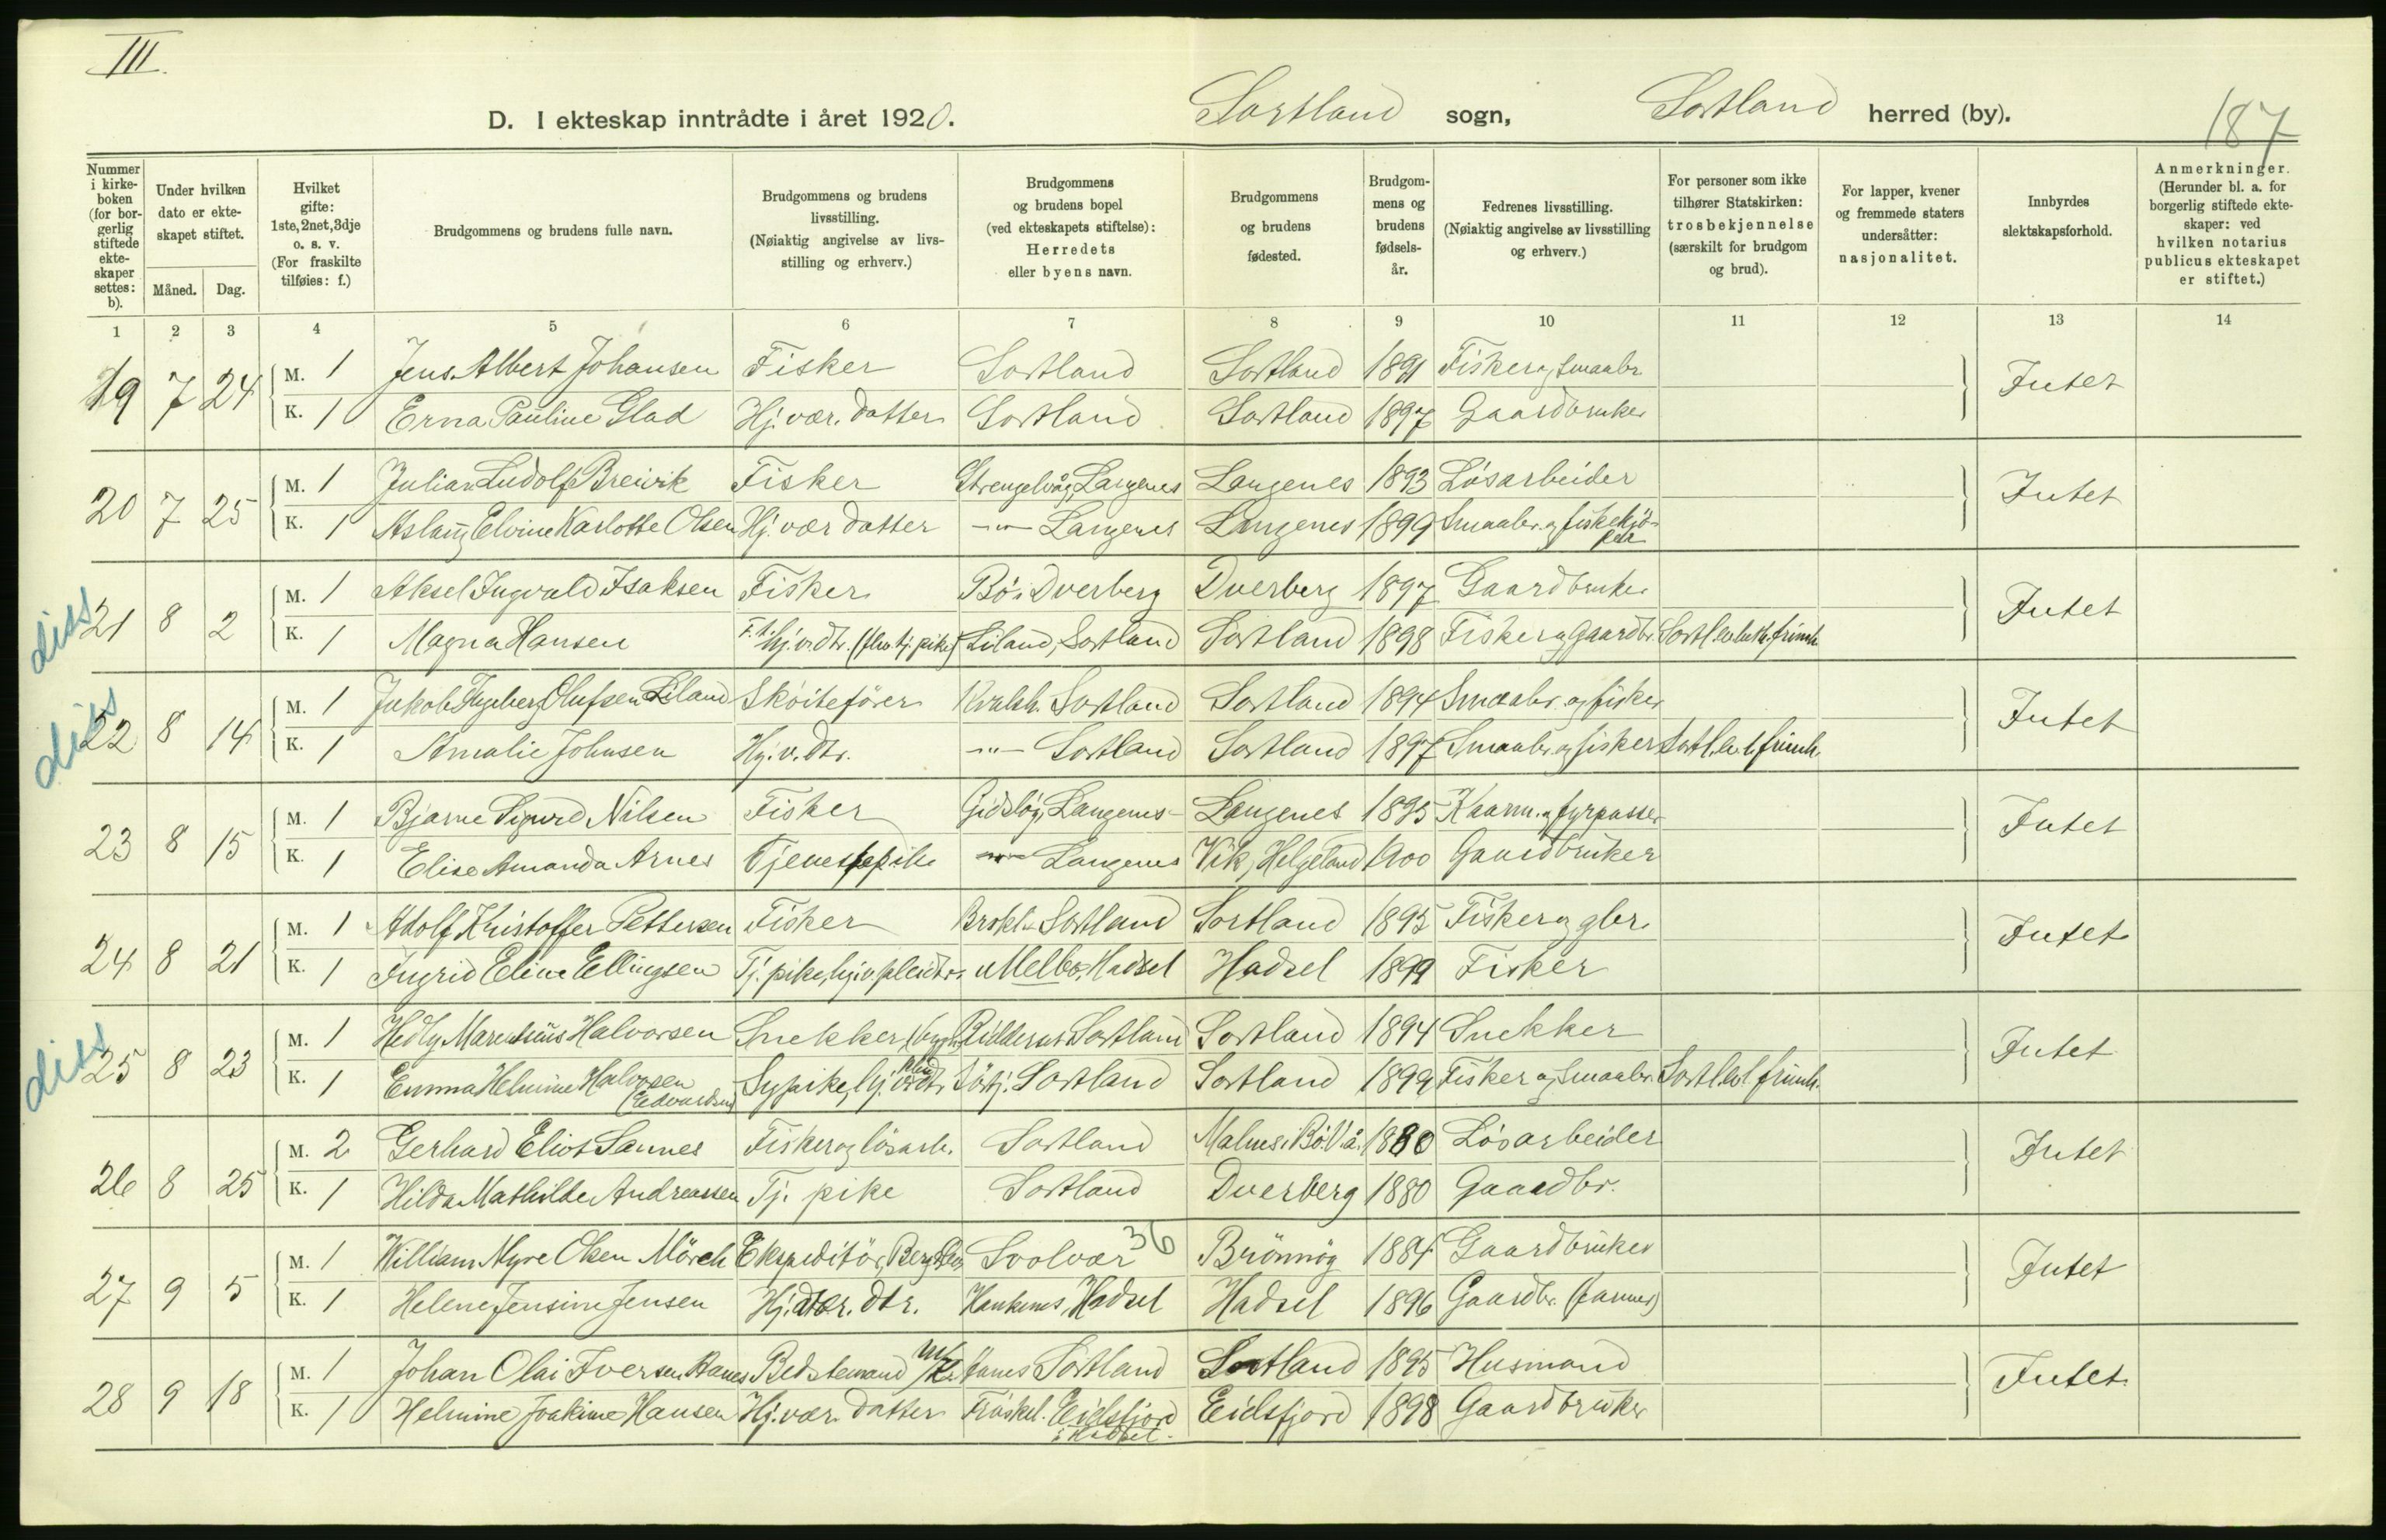 III.
D. I ekteskap inntrådte i året 1920. Sortland sogn, Sortland herred (by). 187
Nummer i kirkeboken (for borgerlig stiftede ekteskaper settes: b).
Under hvilken dato er ekteskapet stiftet. Måned. Dag.
Hvilket gifte: 1ste, 2net, 3dje o. s. v. (For fraskilte tilføies: f.)
Brudgommens og brudens fulle navn.
Brudgommens og brudens livsstilling. (Nøiaktig angivelse av livsstilling og erhverv.)
Brudgommens og brudens bopel (ved ekteskapets stiftelse): Herredets eller byens navn.
Brudgommens og brudens fødested.
Brudgommens og brudens fødselsår.
Fedrenes livsstilling. (Nøiaktig angivelse av livsstilling og erhverv.)
For personer som ikke tilhører Statskirken: trosbekjennelse (særskilt for brudgom og brud).
For lapper, kvener og fremmede staters undersåtter: nasjonalitet.
Innbyrdes slektskapsforhold.
Anmerkninger. (Herunder bl. a. for borgerlig stiftede ekteskaper: ved hvilken notarius publicus ekteskapet er stiftet.)
1 2 3 4 5 6 7 8 9 10 11 12 13 14
19 7 24 M. 1 Jens Albert Johansen Fisker Sortland Sortland 1891 Fisker og smaabr. Intet
K. 1 Erna Pauline Glad Hj. vær. datter Sortland Sortland 1897 Gaardbruker
20 7 25 M. 1 Julian Ludolf Breivik Fisker Strengelvåg, Langenes Langenes 1893 Løsarbeider Intet
K. 1 Aslaug Elvine Karlotte Olsen Hj. vær datter —"— Langenes Langenes 1899 Smaabr. og fiskekjø-
diss 21 8 2 M. 1 Aksel Ingvald Isaksen Fisker Bø i Dverberg Dverberg 1897 Gaardbruker Intet
K. 1 Magna Hansen hj.v.dtr. Liland, Sortland Sortland 1898 Fisker og Gaardbr. Sortl. ev. luth. frimh.
diss 22 8 14 M. 1 Jakob Ingeberg Olufsen Liland Skøitefører Kvalsh. Sortland Sortland 1894 Smaabr. og fisker Intet
K. 1 Amalie Johnsen Hj. v. dtr. —"— Sortland Sortland 1897 Smaabr. og fisker Sortl. ev. l. frimh.
23 8 15 M. 1 Bjarne Sigurd Nilsen Fisker Langenes Langenes 1895 fyrpasser Intet
K. 1 Elise Amanda Arnes Tjenestepike —"— Langenes Vik, Helgeland 1900 Gaardbruker
24 8 21 M. 1 Adolf Kristoffer Pettersen Fisker Brokl. Sortland Sortland 1895 Fisker og gbr. Intet
K. 1 Ingrid Eline Ellingsen Tj. pike, hj.v. pleidtr. Melbo, Hadsel Hadsel 1899 Fisker
diss 25 8 23 M. 1 Hedly Marentius Halvorsen Snekker Sortland Sortland 1894 Snekker Intet
K. 1 Emma Helmine Halvorsen (Edvardsen) Sypike, hj. Sortland Sortland 1899 Fisker og Smaabr. Sortl. ev. l. frimh.
26 8 25 M. 2 Gerhard Eliot Sannes Fisker og løsarb. Sortland Malnes i Bø. V.å. 1880 Løsarbeider Intet
K. 1 Hilda Mathilde Andreassen Tj. pike Sortland Dverberg 1880 Gaardbr.
27 9 5 M. 1 William Myre Olsen Mörch Ekspeditør, Svolvær 36 Brönnöy 1884 Gaardbruker Intet
K. 1 Helene Jensine Jensen Hj. vær. dtr. Haukenes, Hadsel Hadsel 1896 Gaardbr. (farmer)
28 9 18 M. 1 Johan Olai Iversen Bedstemand Sortland Sortland 1895 Husmand Intet.
K. 1 Helmine Joakime Hansen Hj. vær. datter Fräskel. Eidsfjord i Hadsel. Eidsfjord 1898 Gaardbruker